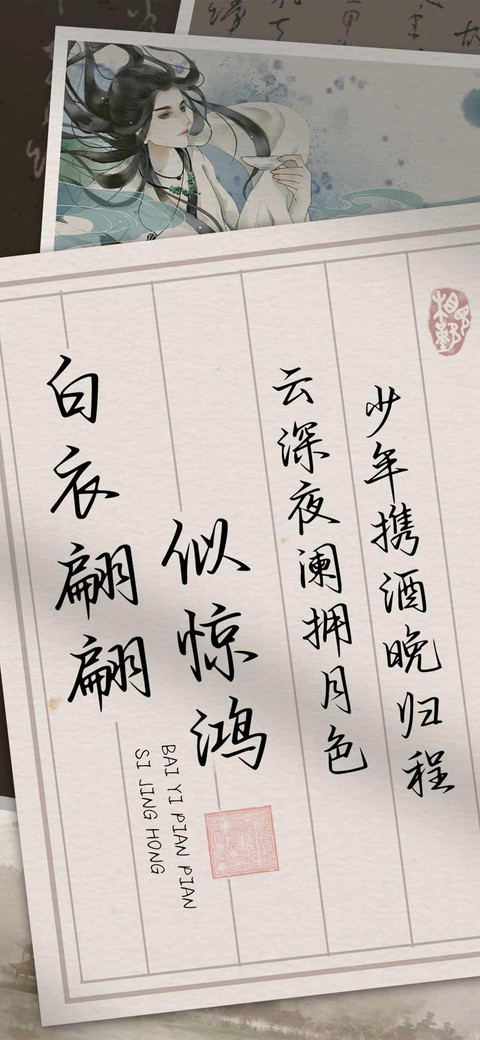 少年携酒晚归程
云深夜阑拥月色
白衣翩翩
似惊鸿
BAI YI PIAN PIAN
SI JING HONG